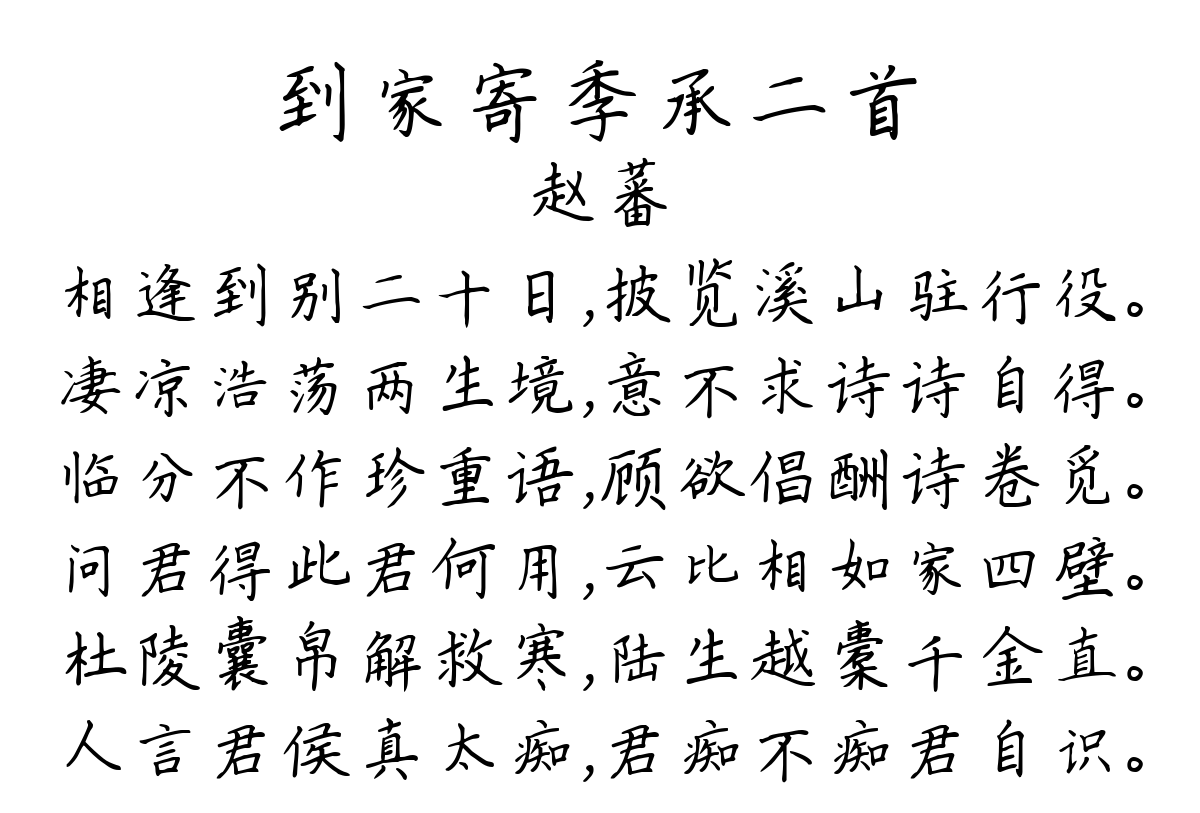 到家寄季承二首
赵蕃
相逢到别二十日,披览溪山驻行役。
凄凉浩荡两生境,意不求诗诗自得。
临分不作珍重语,顾欲倡酬诗卷觅。
问君得此君何用,云比相如家四壁。
杜陵囊帛解救寒,陆生越橐千金直。
人言君侯真太痴,君痴不痴君自识。